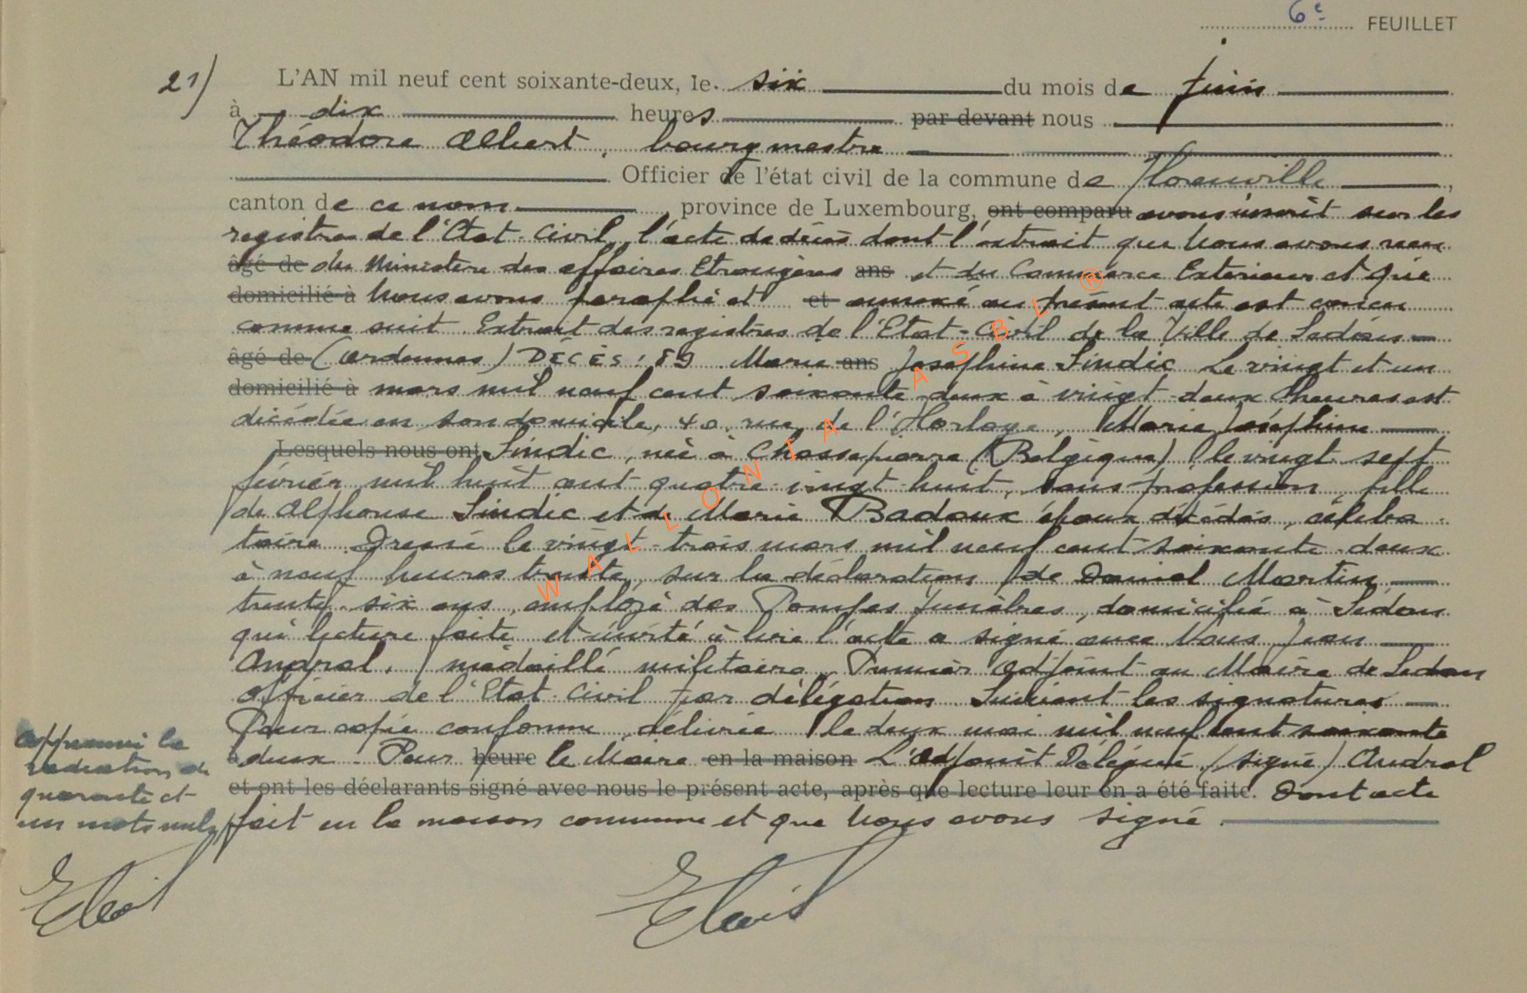 6e FEUILLET
21) L'AN mil neuf cent soixante-deux, le six du mois de juin
à dix heures par devant nous
Théodore Albert, bourgmestre
Officier de l'état civil de la commune de Florenville,
canton de ce nom, province de Luxembourg, ont comparu avons inscrit sur les
registres de l'Etat-Civil, l'acte de décès dont l'extrait que Nous avons reçu
âgé de du Ministère des affaires Etrangères ans et du Commerce Extérieur et que
domicilié à Nous avons paraphé et et annexé au présent acte est conçu
comme suit Extrait des registres de l'Etat-Civil de la Ville de Sedan
âgé de (Ardennes) DÉCÈS : 89 Marie ans Joséphine Sindic Le vingt et un
domicilié à mars mil neuf cent soixante-deux à vingt-deux heures est
décédée en son domicile, 40, rue de l'Horloge, Marie Joséphine
Lesquels nous ont Sindic, née à Chassepierre (Belgique) le vingt sept
février mil huit cent quatre-vingt-huit, sans profession, fille
de Alphonse Sindic et de Marie Badoux époux décédés, céliba
taire. Dressé le vingt-trois mars mil neuf cent soixante-deux
à neuf heures trente, sur la déclaration de Daniel Martin
trente-six ans, employé des Pompes funèbres, domicilié à Sedan
qui lecture faite et invité à lire l'acte a signé avec Nous Jean
Andral, médaillé militaire, Premier adjoint au Maire de Sedan
officier de l'Etat-Civil par délégation Suivent les signatures
Pour copie conforme, délivrée le deux mai mil neuf cent soixante
à deux. Pour heure le Maire en la maison L'adjoint Délégué, (signé) Andral
et ont les déclarants signé avec nous le présent acte, après que lecture leur en a été faite. Dont acte
fait en la maison commune et que Nous avons signé.
approuvé la
radiation de
quarante et
un mots nuls
WALLONIA ASBL ®